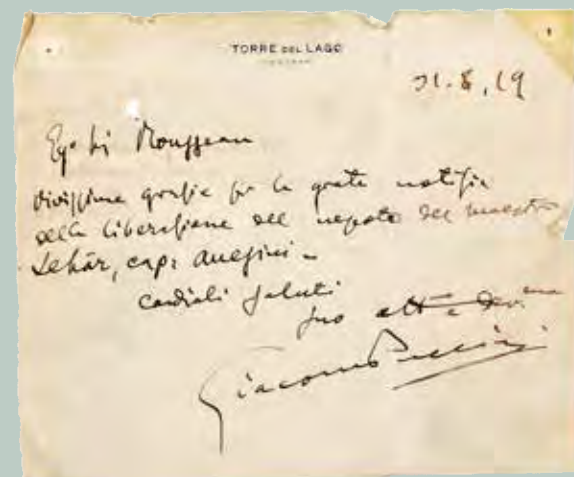 TORRE DEL LAGO
TOSCANA
31.8.19
Eg. Sig. Mousseau
vivissime grazie per la grata notizia
della liberazione del nepote del maestro
Lehár, cap:
cordiali saluti
suo
Giacomo Puccini